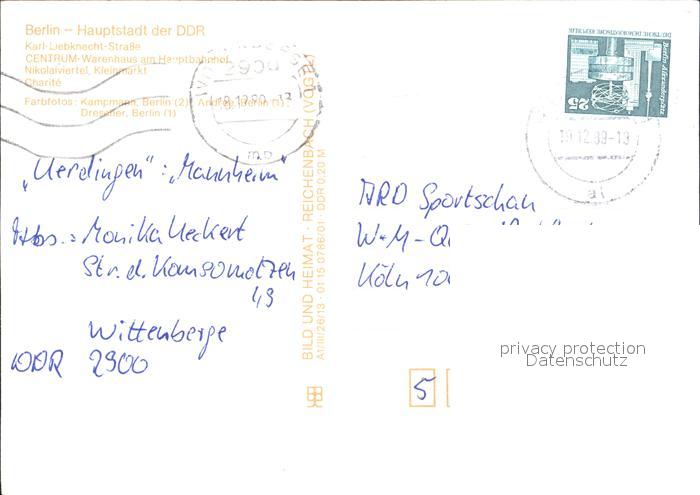 Berlin – Hauptstadt der DDR
Karl-Liebknecht-Straße
CENTRUM-Warenhaus am Hauptbahnhof
Nikolaiviertel, Kleinmarkt
Charité
Farbfotos: Kampmann, Berlin (2) Berlin (1),
Drescher, Berlin (1)
2900
18.12.89-13
mo
DEUTSCHE DEMOKRATISCHE REPUBLIK
Berlin, Alexanderplatz
25
19.12.89-13
al
„Uerdingen": „Mannheim"
Abs.: Monika Ueckert
Str. d. Komsomolzen
49
Wittenberge
DDR 2900
BILD UND HEIMAT · REICHENBACH (VOGTL)
A1/III/26/13 · 01 15 0786/01 · DDR 0,20 M
ARD Sportschau
W-M-Q
Köln 10
5
privacy protection
Datenschutz